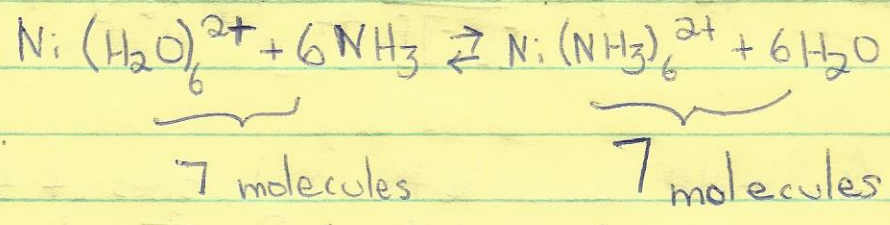 Ni(H₂O)₆²⁺ + 6NH₃ ⇄ Ni(NH₃)₆²⁺ + 6H₂O
7 molecules 7 molecules